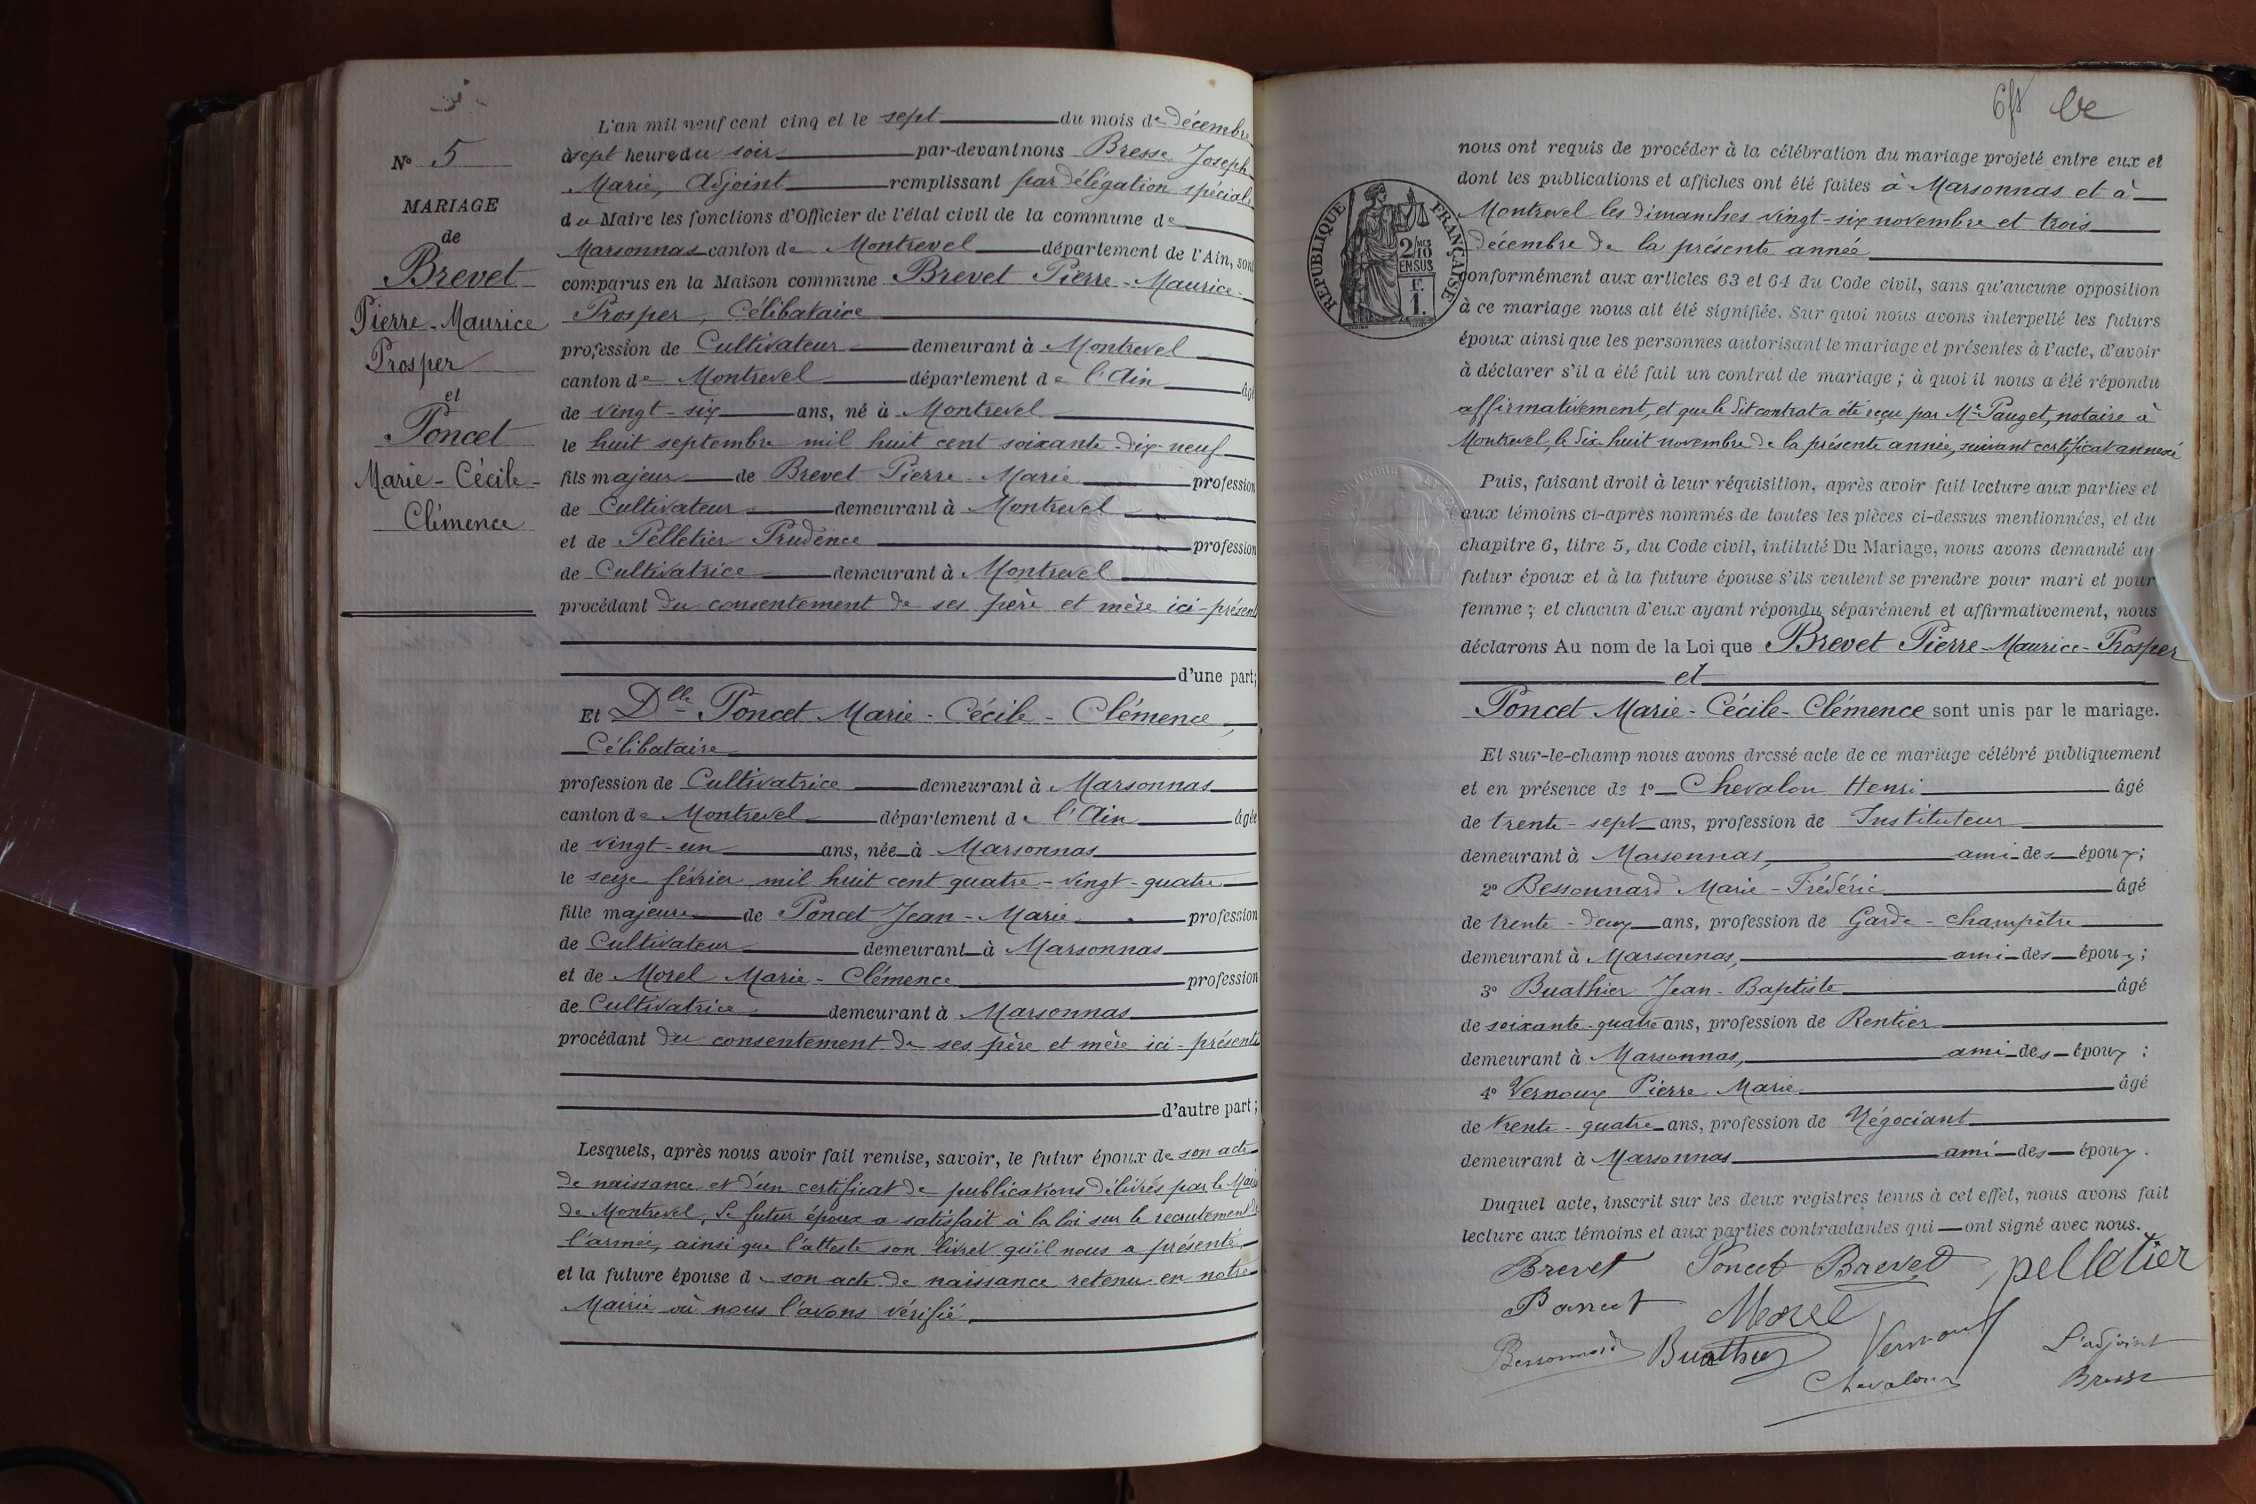 N° 5
MARIAGE
de
Brevet
Pierre-Maurice
Prosper
et
Poncet
Marie-Cécile-
Clémence
L'an mil neuf cent cinq et le sept du mois de décembre
à sept heure du soir par-devant nous Bresse Joseph
Marie, Adjoint remplissant par délégation spéciale
du Maire les fonctions d'Officier de l'état civil de la commune de
Marsonnas canton de Montrevel département de l'Ain, sont
comparus en la Maison commune Brevet Pierre-Maurice-
Prosper, Célibataire
profession de Cultivateur demeurant à Montrevel
canton de Montrevel département de l'Ain âgé
de vingt-six ans, né à Montrevel
le huit septembre mil huit cent soixante-dix-neuf
fils majeur de Brevet Pierre-Marie profession
de Cultivateur demeurant à Montrevel
et de Pelletier Prudence profession
de Cultivatrice demeurant à Montrevel
procédant du consentement de ses père et mère ici-présents
d'une part;
Et Dlle Poncet Marie-Cécile-Clémence,
Célibataire
profession de Cultivatrice demeurant à Marsonnas
canton de Montrevel département de l'Ain âgée
de vingt-un ans, née à Marsonnas
le seize février mil huit cent quatre-vingt-quatre
fille majeure de Poncet Jean-Marie profession
de Cultivateur demeurant à Marsonnas
et de Morel Marie-Clémence profession
de Cultivatrice demeurant à Marsonnas
procédant du consentement de ses père et mère ici-présents
d'autre part;
Lesquels, après nous avoir fait remise, savoir, le futur époux de son acte
de naissance et d'un certificat de publications délivrés par le Maire
de Montrevel, Le futur époux a satisfait à la loi sur le recrutement de
l'armée, ainsi que l'atteste son livret qu'il nous a présenté
et la future épouse de son acte de naissance retenu en notre
Mairie où nous l'avons vérifié,
nous ont requis de procéder à la célébration du mariage projeté entre eux et
dont les publications et affiches ont été faites à Marsonnas et à
Montrevel les dimanches vingt-six novembre et trois
décembre de la présente année
conformément aux articles 63 et 64 du Code civil, sans qu'aucune opposition
à ce mariage nous ait été signifiée. Sur quoi nous avons interpellé les futurs
époux ainsi que les personnes autorisant le mariage et présentes à l'acte, d'avoir
à déclarer s'il a été fait un contrat de mariage ; à quoi il nous a été répondu
affirmativement, et que le dit contrat a été reçu par Me Pauget, notaire à
Montrevel, le dix-huit novembre de la présente année, suivant certificat annexé
RÉPUBLIQUE FRANÇAISE
2/10
EN SUS
F.
1.
Puis, faisant droit à leur réquisition, après avoir fait lecture aux parties et
aux témoins ci-après nommés de toutes les pièces ci-dessus mentionnées, et du
chapitre 6, titre 5, du Code civil, intitulé Du Mariage, nous avons demandé au
futur époux et à la future épouse s'ils veulent se prendre pour mari et pour
femme ; et chacun d'eux ayant répondu séparément et affirmativement, nous
déclarons Au nom de la Loi que Brevet Pierre-Maurice-Prosper
et
Poncet Marie-Cécile-Clémence sont unis par le mariage.
Et sur-le-champ nous avons dressé acte de ce mariage célébré publiquement
et en présence de 1° Chevalon Henri âgé
de trente-sept ans, profession de Instituteur
demeurant à Marsonnas, ami des époux;
2° Bessonnard Marie-Frédéric âgé
de trente-deux ans, profession de Garde-champêtre
demeurant à Marsonnas, ami des époux;
3° Buathier Jean-Baptiste âgé
de soixante-quatre ans, profession de Rentier
demeurant à Marsonnas, ami des époux;
4° Vernoux Pierre Marie âgé
de trente-quatre ans, profession de Négociant
demeurant à Marsonnas ami des époux.
Duquel acte, inscrit sur les deux registres tenus à cet effet, nous avons fait
lecture aux témoins et aux parties contractantes qui ont signé avec nous.
Brevet Poncet Brevet pelletier
Poncet Morel
Bessonnard Buathier Vernoux L'adjoint
Chevalon Bresse